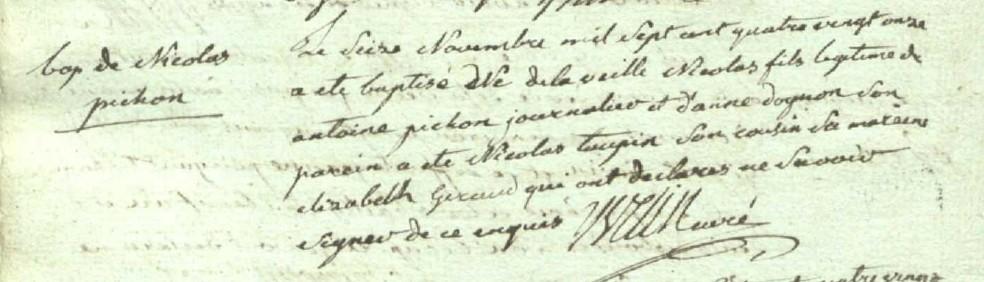 bap de Nicolas
pichon
Le Seize Novembre mil Sept cent quatre vingt onze
a ete baptisé Né de la veille Nicolas fils legitime de
antoine pichon journalier et d'anne dognon Son
parein a ete Nicolas toupin Son cousin Sa mareine
elizabelh Geraud qui ont declares ne Savoir
Signer de ce enquis curé